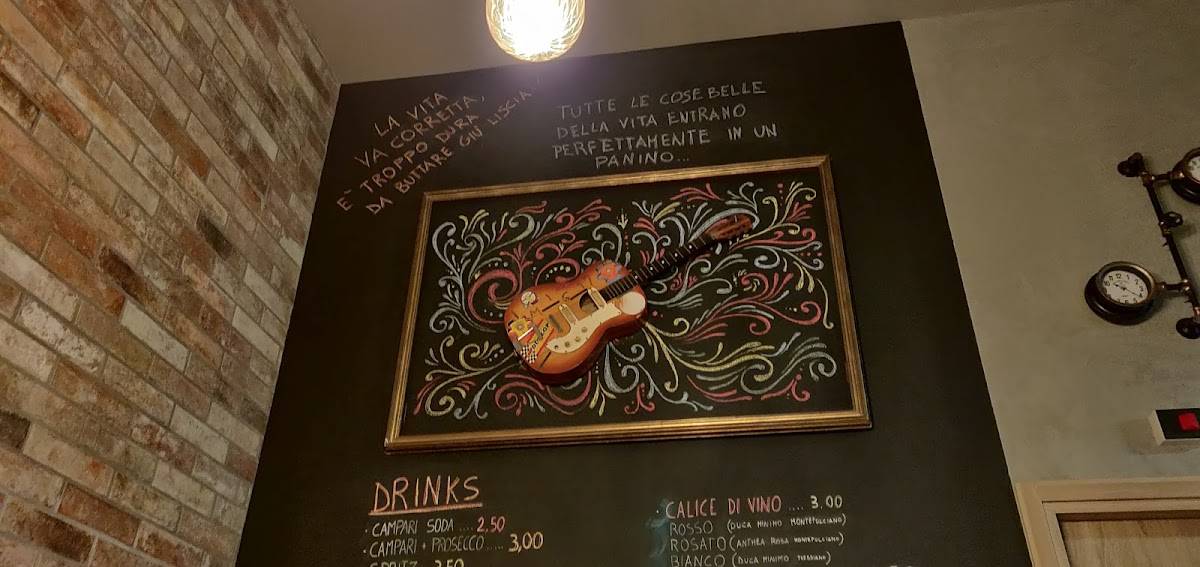 LA VITA
VA CORRETTA,
E' TROPPO DURA
DA BUTTARE GIÙ LISCIA!
TUTTE LE COSE BELLE
DELLA VITA ENTRANO
PERFETTAMENTE IN UN
PANINO...
DRINKS
· CAMPARI SODA .... 2,50
· CAMPARI + PROSECCO ..... 3,00
SPRITZ 3,50
· CALICE DI VINO .... 3.00
ROSSO (DUCA MINIMO MONTEPULCIANO)
ROSATO (ANTHEA ROSA MONTEPULCIANO)
BIANCO (DUCA MINIMO TREBBIANO)